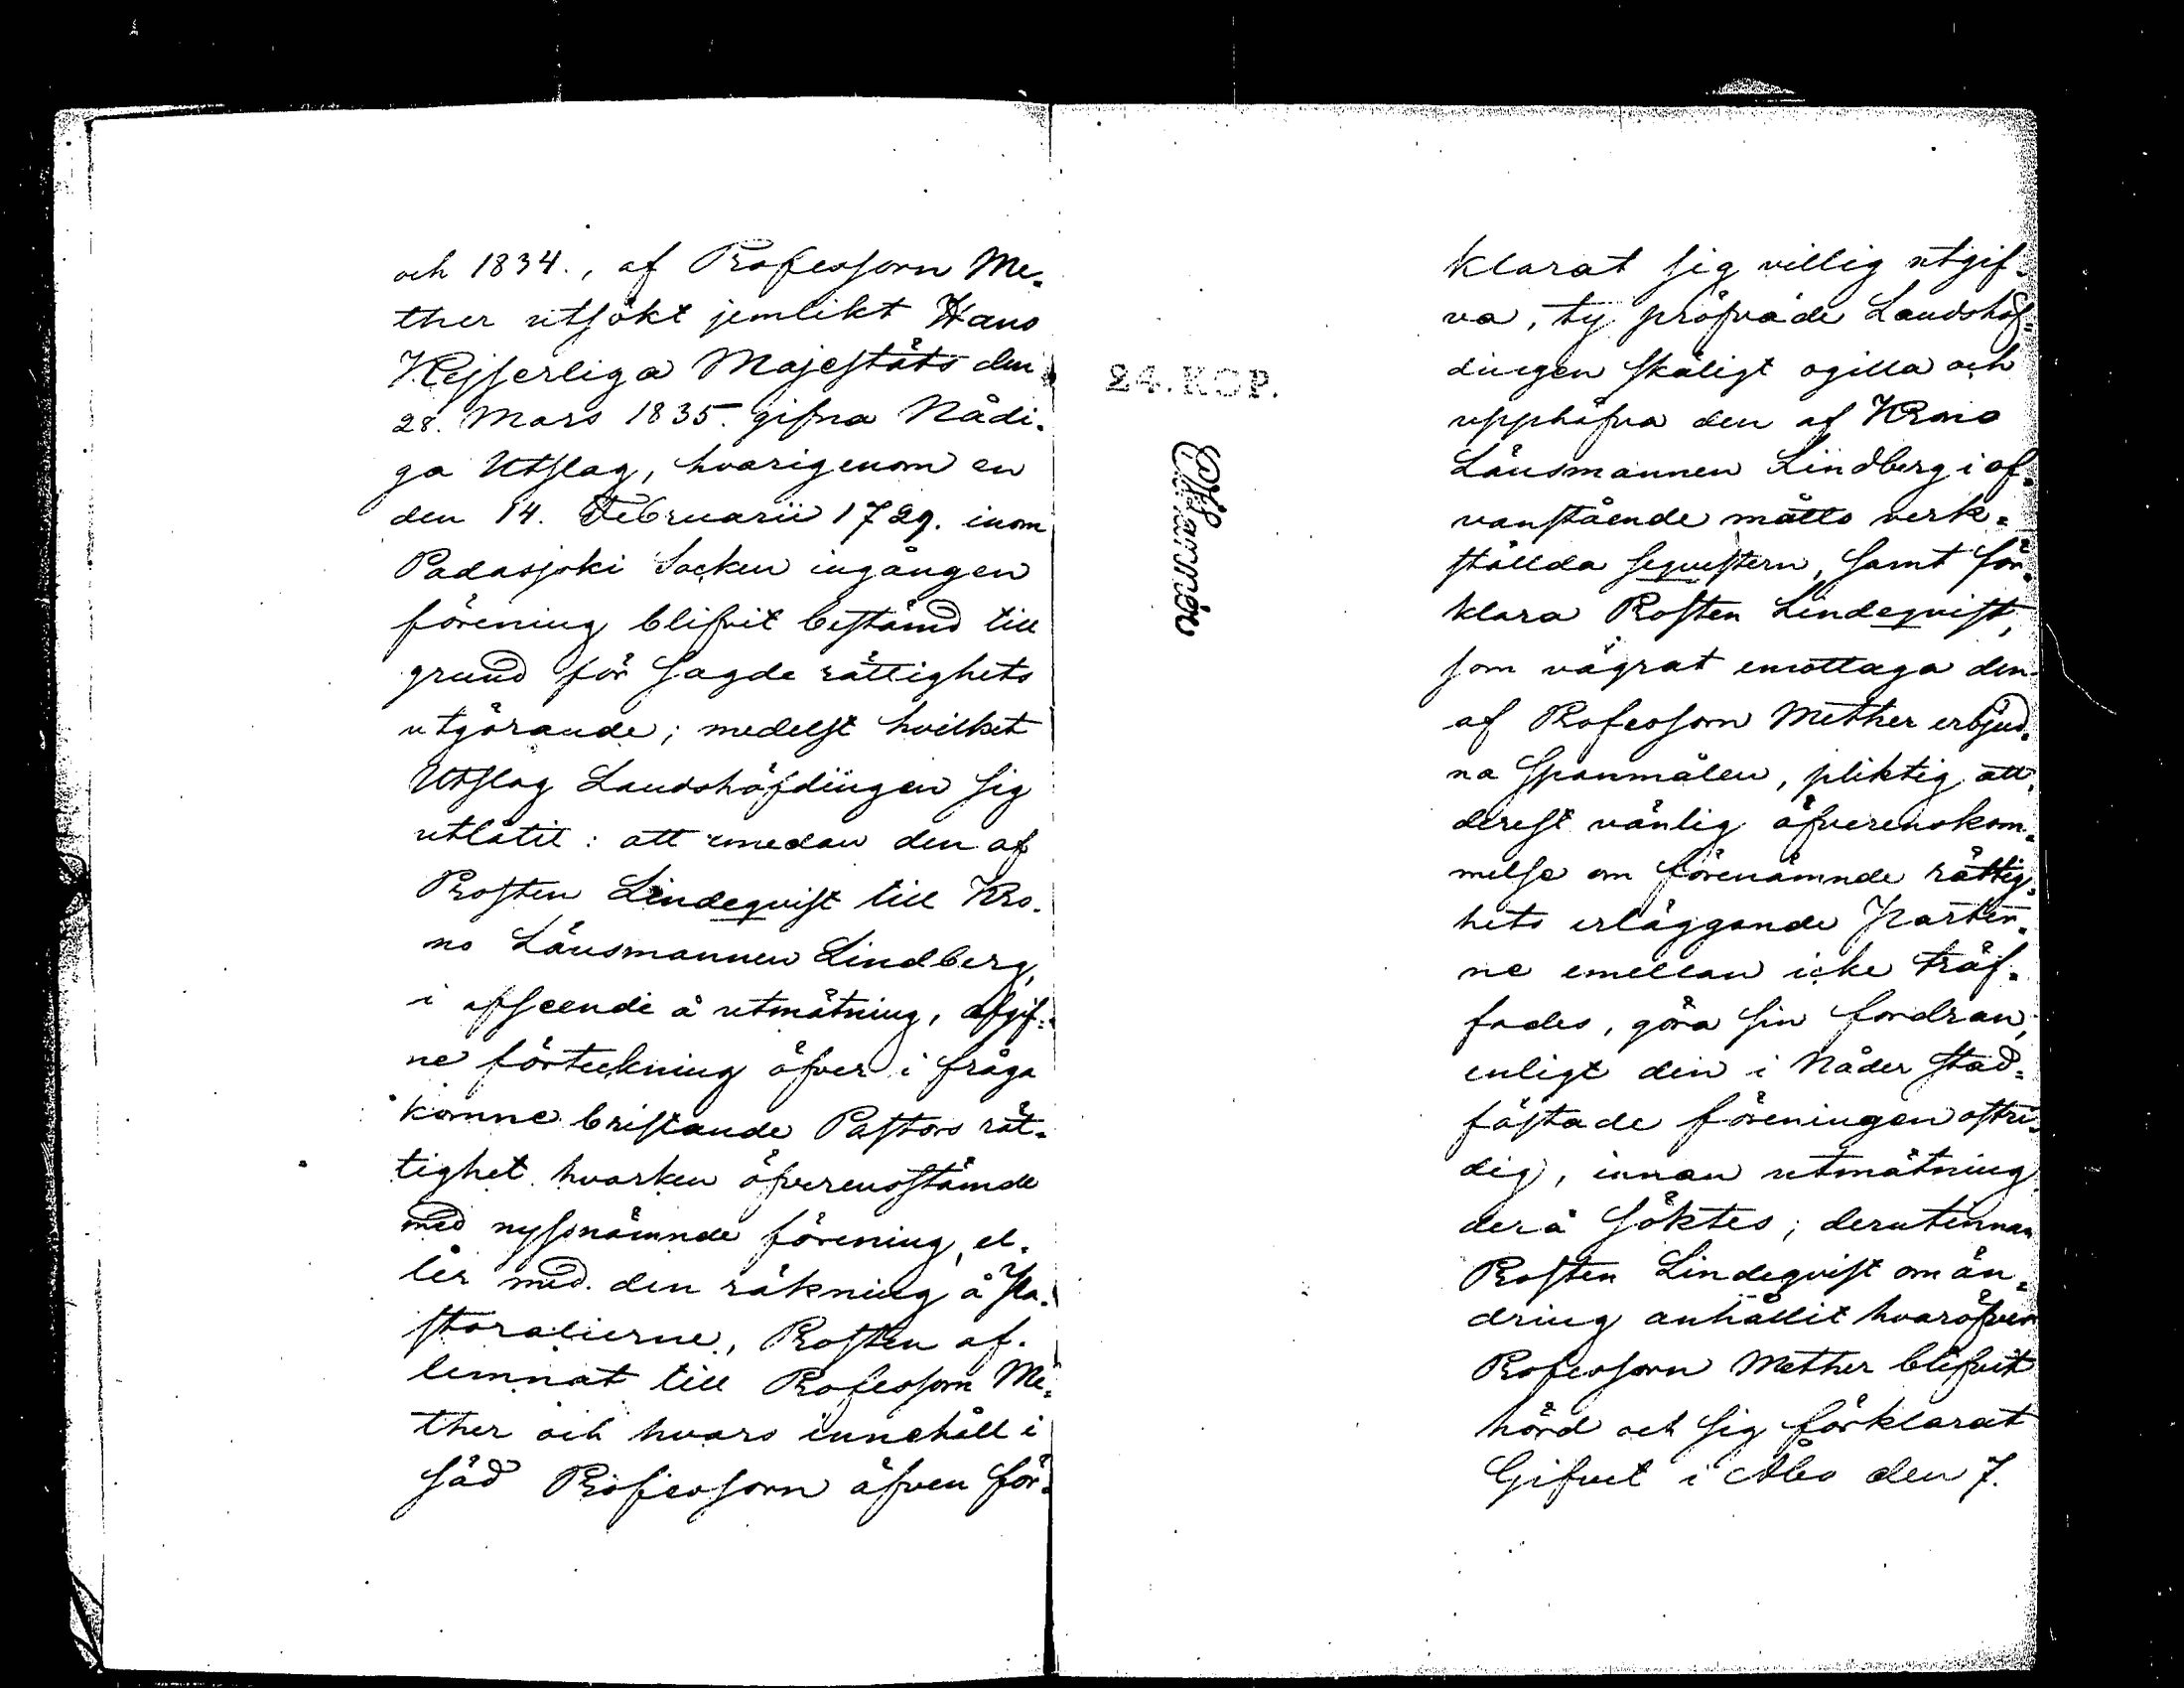 och 1834., af Professorn Me-
ther utsökt jemlikt Hans
Kejserliga Majestäts den
28. Mars 1835. gifna Nådi-
ga Utslag, hvarigenom en
den 14. Februarii 1729. inom
Padasjoki Socken ingången
förening blifvit bestämd till
grund för sagde rättighets
utgörande; medelst hvilket
Utslag Landshöfdingen sig
utlåtit: att emedan den af
Prosten Lindeqvist till Kro-
no Länsmannen Lindberg,
i afseende å utmätning, afgif-
ne förteckning öfver i fråga
komne bristande Pastors rät-
tighet hvarken öfverensstämde
med nyssnämnde förening, el-
ler med den räkning å Pa-
storalierne, Prosten af-
lemnat till Professorn Me-
ther och hvars innehåll i
säd Professorn äfven för-
24. KOP.
klarat sig villig utgif-
va, ty pröfvade Landshöf-
dingen skäligt ogilla och
upphäfva den af Krono
Länsmannen Lindberg i of-
vanstående måtto verk-
ställda seqvestern, samt för-
klara Prosten Lindeqvist,
som vägrat emottaga den
af Professorn Mether erbjud-
na Spanmålen, pliktig att,
derest vänlig öfverenskom-
melse om förenämnde rättig-
hets erläggande Parter-
ne emellan icke träf-
fades, göra sin fordran,
enligt den i Nåder stad-
fästade föreningen ostri-
dig, innan utmätning
derå söktes; derutinnan
Prosten Lindeqvist om än-
dring anhållit hvaröfver
Professorn Mether blifvit
hörd och sig förklarat
Gifvet i Åbo den 7.